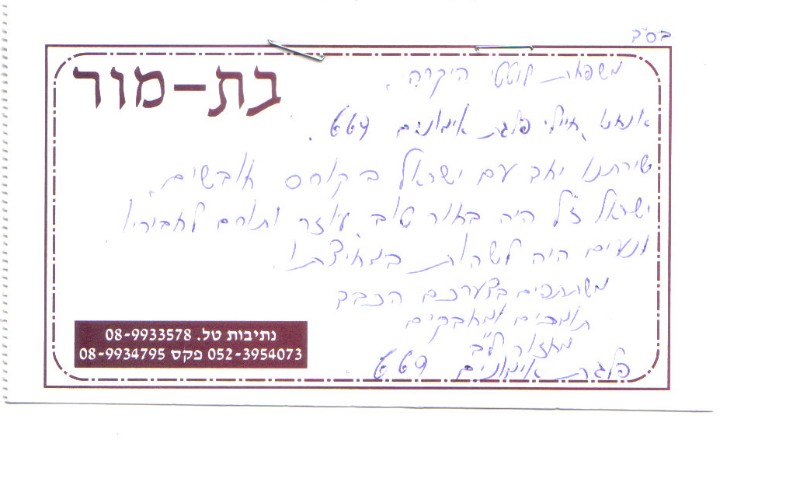 בס"ד
בת-מור
משפחת לוטטי היקרה.
אנחנו, חיילי פלגת אימונים 669.
שירתנו יחד עם ישראל בקורס חובשים.
ישראל ז"ל היה בחור טוב, עוזר ותורם לחבריו
ונעים היה לשהות במחיצתו.
משתתפים בצערכם הכבד
תומכים ומחבקים
מחזור ל"ב
פלגת אימונים 669
נתיבות טל. 08-9933578
052-3954073 פקס 08-9934795